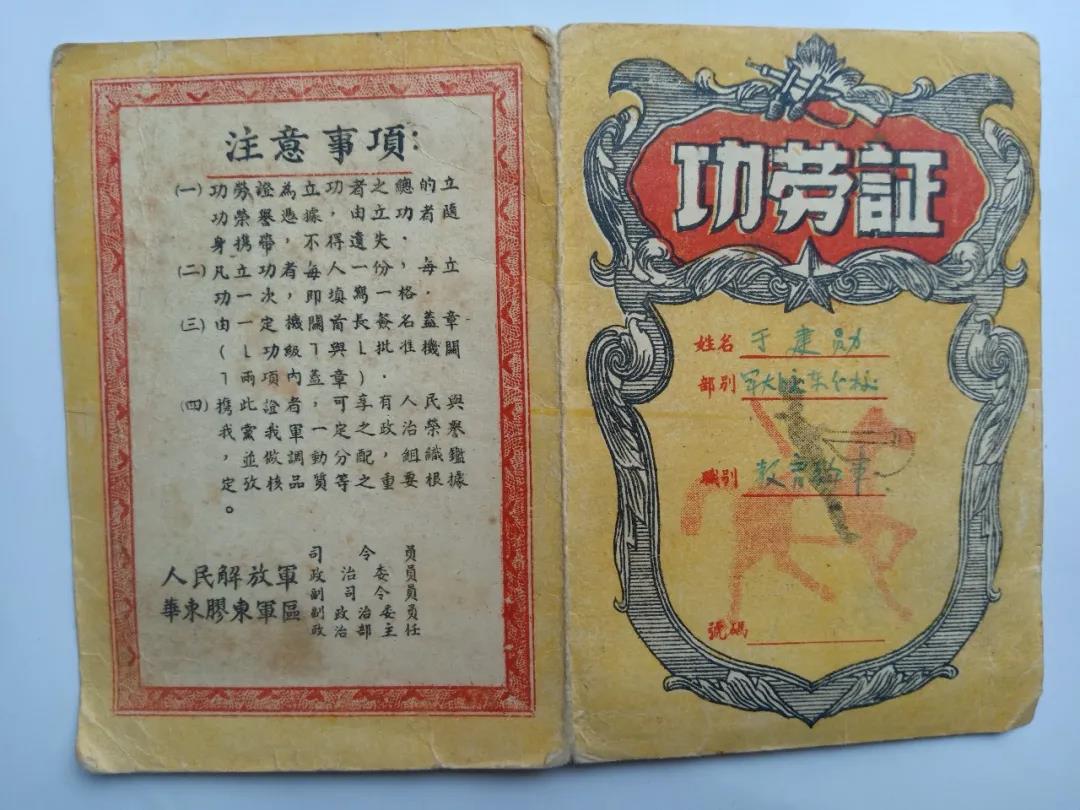 注意事項:
(一)功勞證為立功者之總的立
功榮譽憑據,由立功者隨
身携帶,不得遺失.
(二)凡立功者每人一份,每立
功一次,即填寫一格.
(三)由一定機關首長簽名蓋章
(「功級」與「批准機關
」兩項內蓋章).
(四)携此證者,可享有人民與
我黨我軍一定之政治榮譽
,並做調動分配,組織鑑
定攷核品質等之重要根據
。
人民解放軍
華東膠東軍區
司令員
政治委員
副司令員
副政治委員
政治部主任
功劳証
姓名 于建勋
部別 军大胶东分校
職别 教育幹事
號碼